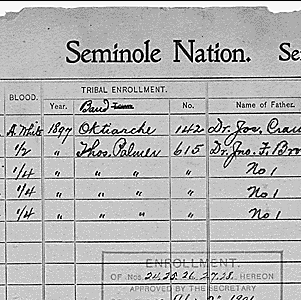 Seminole Nation. Se
BLOOD. TRIBAL ENROLLMENT.
Year. Band Town No. Name of Father.
A. White 1897 Oktiarche 142 Dr. Jos. Crai
1/2 " Thos. Palmer 615 Dr. Jno. F. Bro
1/4 " " " No 1
1/4 " " " No 1
1/4 " " " No 1
ENROLLMENT
OF NOS. 24, 25, 26, 27, 28, HEREON
APPROVED BY THE SECRETARY